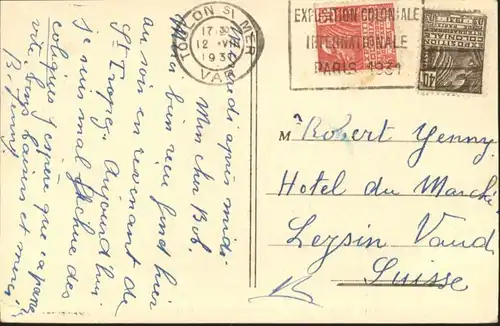 TOULON S/ MER
17 30
12 · VII
1930
VAR
EXPOSITION COLONIALE
INTERNATIONALE
PARIS 1931
après-midi
Mon cher Bob.
bien reçu hier
au soir en revenant de
St Tropez. Aujourd'hui
je suis mal fichue des
coliques j'espère que ça passe
vite bons baisers et merci
B. Jenny
Mr Robert Yenny
Hotel du Marché
Leysin Vaud
Suisse